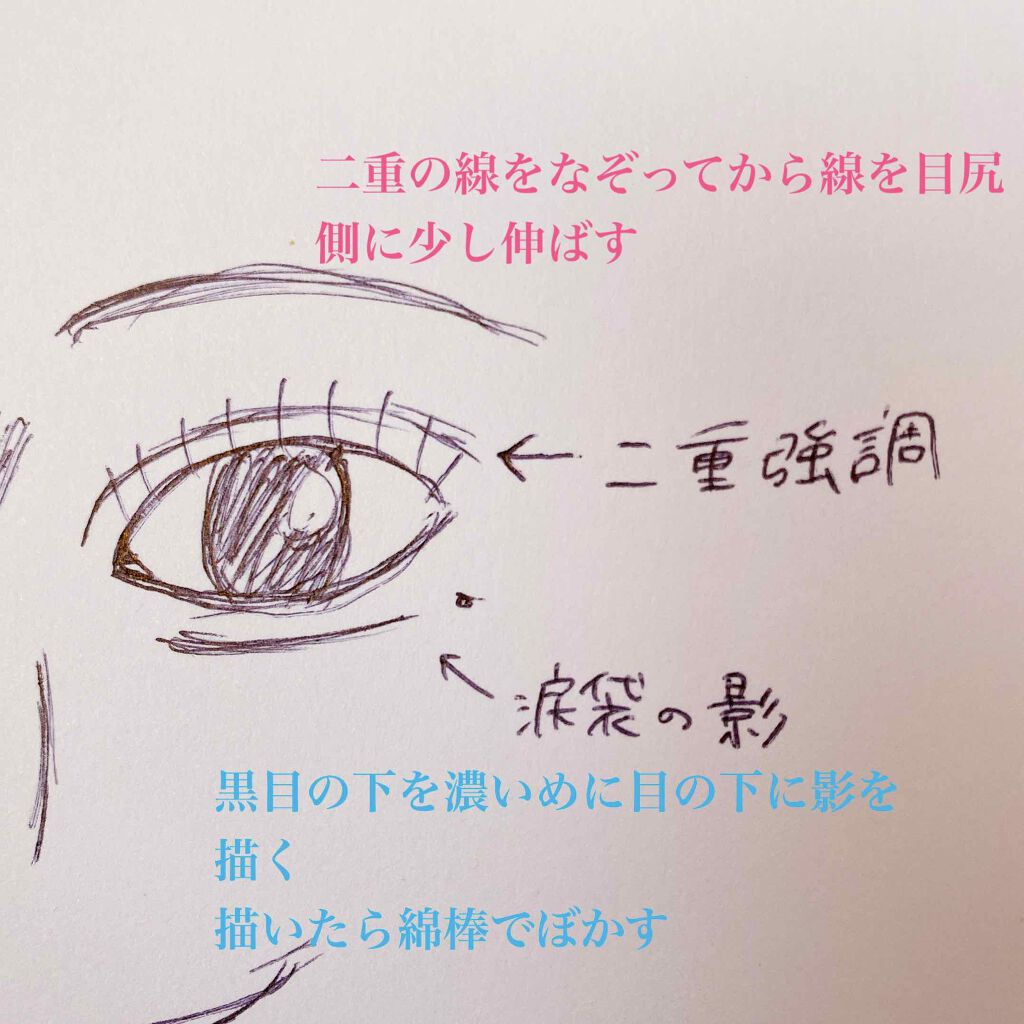 二重の線をなぞってから線を目尻
側に少し伸ばす
二重強調
涙袋の影
黒目の下を濃いめに目の下に影を
描く
描いたら綿棒でぼかす